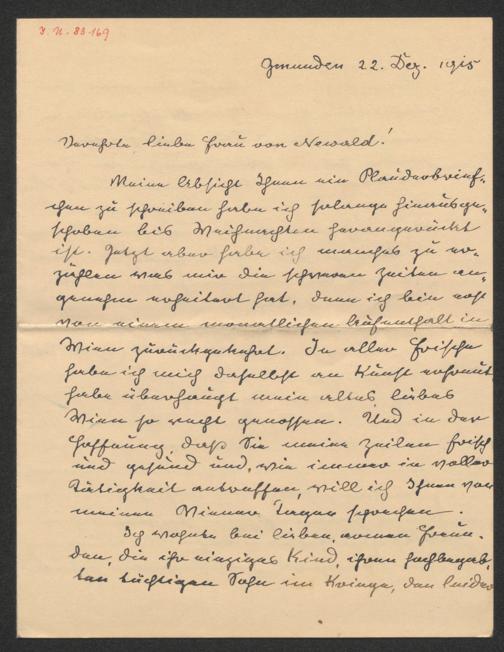 J. N. 83.169
Gmunden 22. Dez. 1915
Verehrte liebe Frau von Newald!
Meine Absicht Ihnen ein Plauderbrief-
chen zu schreiben habe ich solange hinausge-
schoben bis Weihnachten herangerückt
ist. Jetzt aber habe ich manches zu er-
zählen was mir die schweren Zeiten an-
genehm erheitert hat, denn ich bin erst
von einem monatlichen Aufenthalt in
Wien zurückgekehrt. In aller Frische
habe ich mich daselbst an Kunst erfreut
habe überhaupt mein altes liebes
Wien so recht genossen. Und in der
Hoffnung daß Sie meine Zeilen frisch
und gesund und, wie immer in voller
Tätigkeit antreffen, will ich Ihnen von
meinen Wiener Tagen sprechen.
Ich wohnte bei lieben, armen Freun-
den, die ihr einziges Kind, ihren hochbegab-
ten tüchtigen Sohn im Kriege, den leider